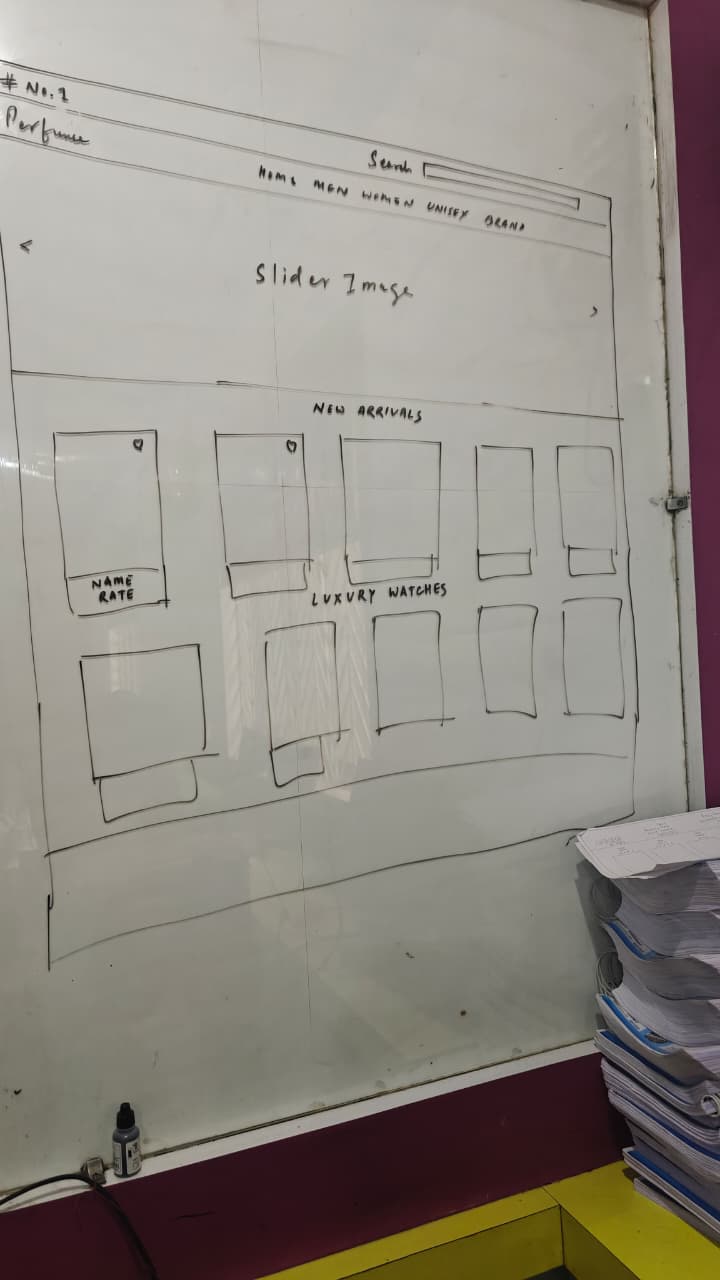 # No.1
Perfume
Search
HOME MEN WOMEN UNISEX BRAND
<
Slider Image
>
NEW ARRIVALS
NAME
RATE
LUXURY WATCHES